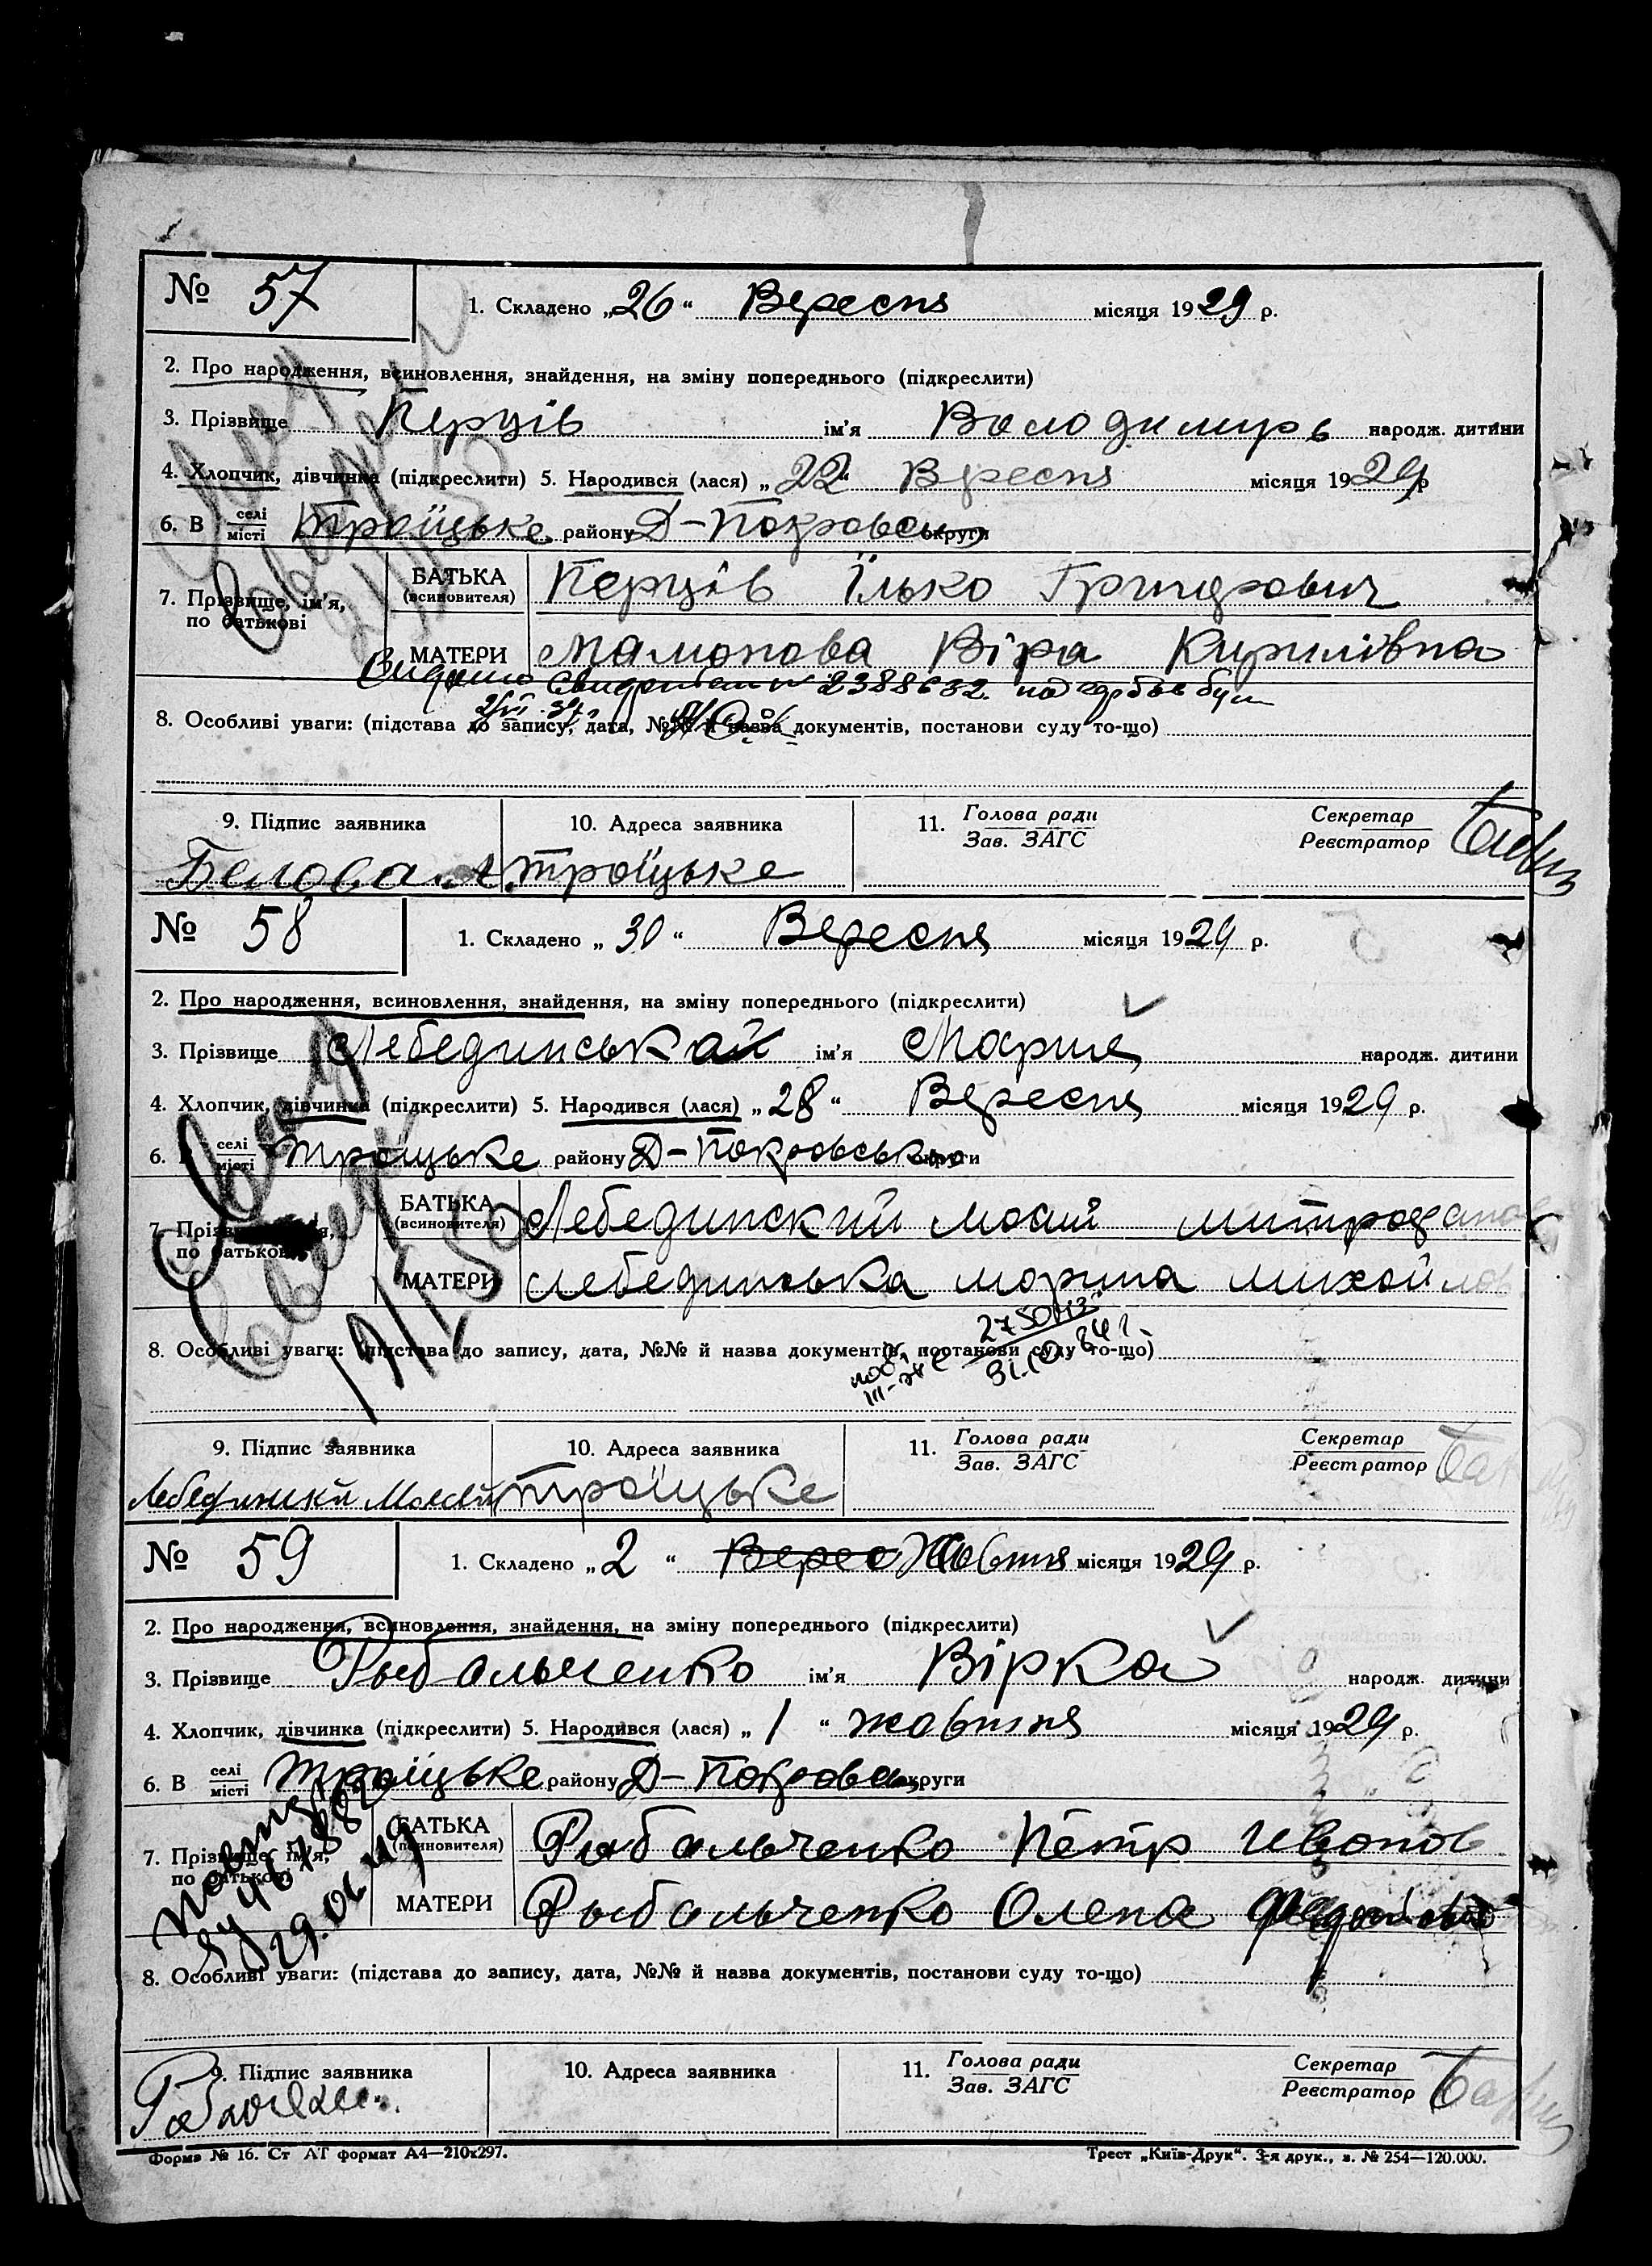 № 57 1. Складено „26“ Вересня місяця 1929 р.
2. Про народження, всиновлення, знайдення, на зміну попереднього (підкреслити)
3. Прізвище Перців ім'я Володимирь народж. дитини
4. Хлопчик, дівчинка (підкреслити) 5. Народився (лася) „22“ Вересня місяця 1929 р
6. В селі місті Троїцьке району Д-Покровськ округи
7. Прізвище, ім'я, по батькові
БАТЬКА (всиновителя) Перців Ілько Григорович
МАТЕРИ Мамонова Віра Кирилівна
2388632
8. Особливі уваги: (підстава до запису, дата, №№ й назва документів, постанови суду то-що)
9. Підпис заявника 10. Адреса заявника 11. Голова ради Зав. ЗАГС Секретар Реєстратор
Белова Троїцьке
№ 58 1. Складено „30“ Вересня місяця 1929 р.
2. Про народження, всиновлення, знайдення, на зміну попереднього (підкреслити)
3. Прізвище Лебединська ім'я Мария народж. дитини
4. Хлопчик, дівчинка (підкреслити) 5. Народився (лася) „28“ Вересня місяця 1929 р.
6. В селі місті Троїцьке району Д-Покровсько округи
7. Прізвище, ім'я, по батькові
БАТЬКА (всиновителя) Лебединский Мосий
МАТЕРИ Лебединська Марина Михайлов
8. Особливі уваги: (підстава до запису, дата, №№ й назва документів, постанови суду то-що)
9. Підпис заявника 10. Адреса заявника 11. Голова ради Зав. ЗАГС Секретар Реєстратор
Троїцьке
№ 59 1. Складено „2“ Верес Жовтня місяця 1929 р.
2. Про народження, всиновлення, знайдення, на зміну попереднього (підкреслити)
3. Прізвище Рыбальченко ім'я Вірка народж. дитини
4. Хлопчик, дівчинка (підкреслити) 5. Народився (лася) „1“ жовтня місяця 1929 р.
6. В селі місті Троїцьке району Д-Покровськ округи
7. Прізвище, ім'я, по батькові
БАТЬКА (всиновителя) Рыбальченко Петр Иванов
МАТЕРИ Рыбальченко Олена
8. Особливі уваги: (підстава до запису, дата, №№ й назва документів, постанови суду то-що)
9. Підпис заявника 10. Адреса заявника 11. Голова ради Зав. ЗАГС Секретар Реєстратор
Форма № 16. Ст АТ формат А4—210х297. Трест „Київ-Друк“. 3-я друк., з. № 254—120.000.